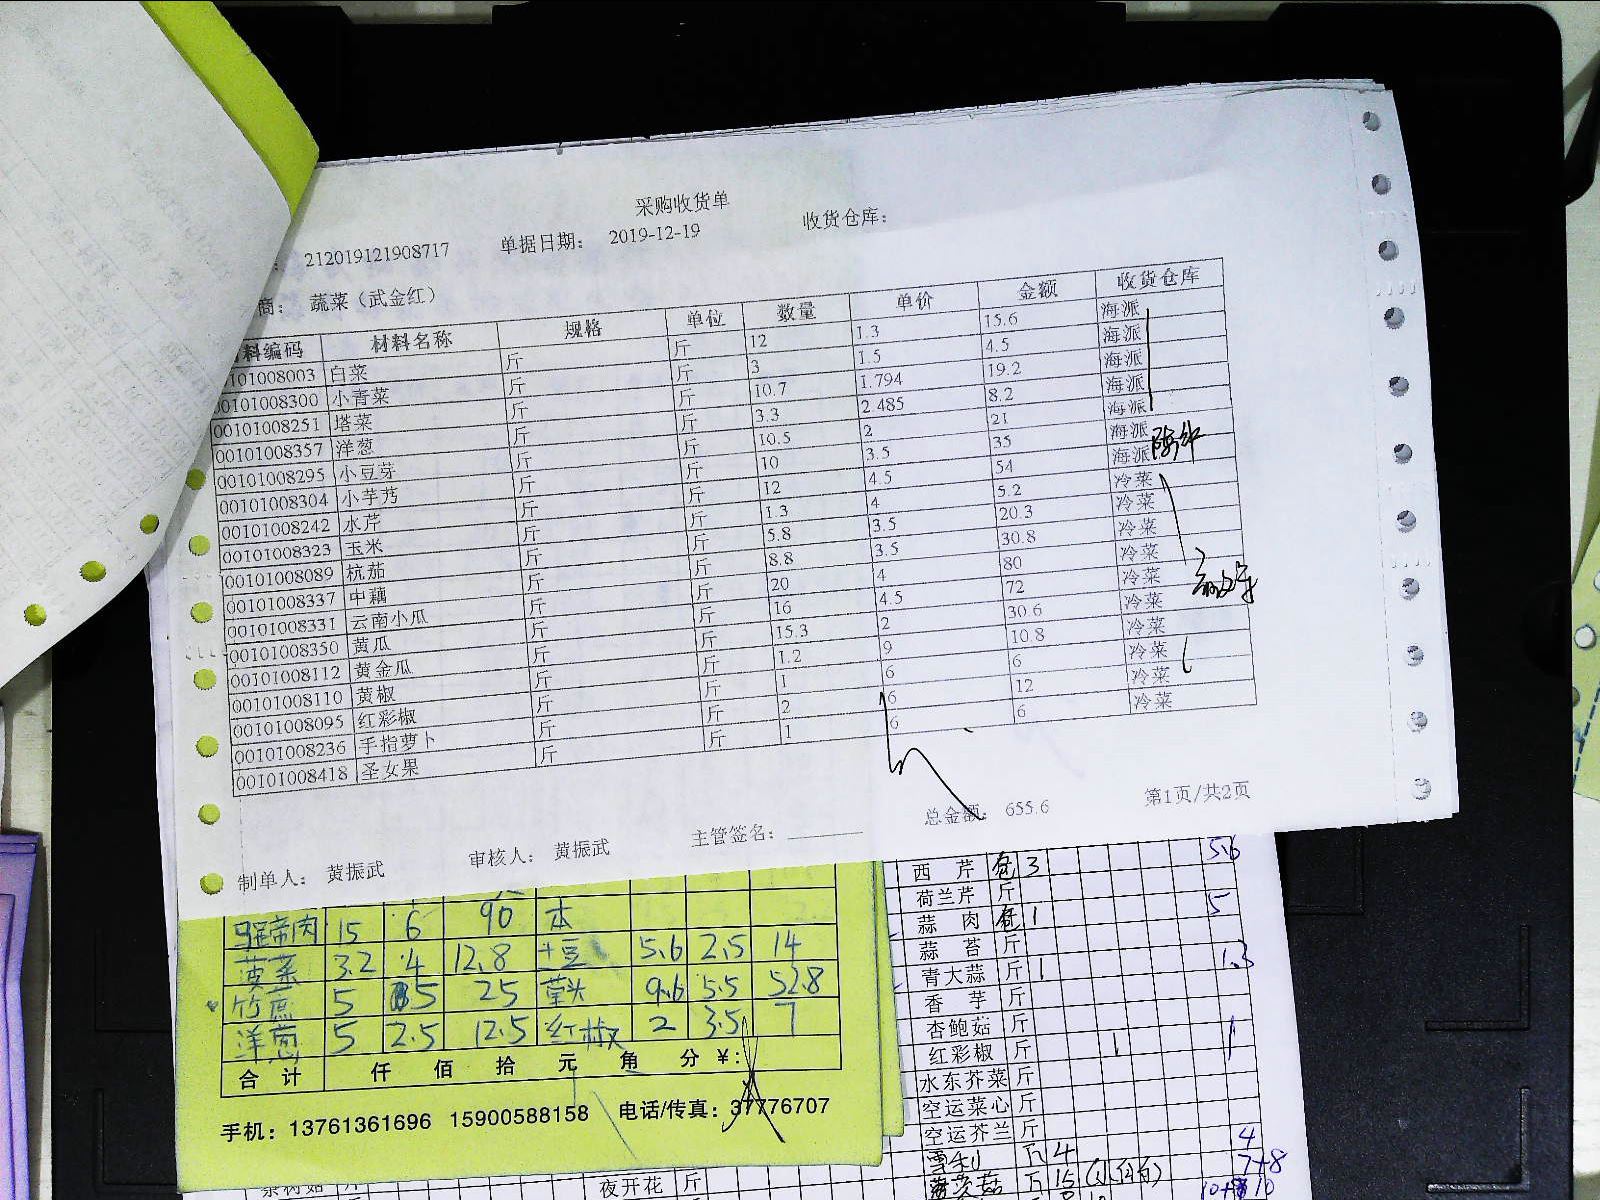 采购收货单
212019121908717 单据日期： 2019-12-19 收货仓库：
商： 蔬菜（武金红）
料编码 材料名称 规格 单位 数量 单价 金额 收货仓库
101008003 白菜 斤 斤 12 1.3 15.6 海派
00101008300 小青菜 斤 斤 3 1.5 4.5 海派
00101008251 塔菜 斤 斤 10.7 1.794 19.2 海派
00101008357 洋葱 斤 斤 3.3 2.485 8.2 海派
00101008295 小豆芽 斤 斤 10.5 2 21 海派
00101008304 小芋艿 斤 斤 10 3.5 35 海派
00101008242 水芹 斤 斤 12 4.5 54 海派
00101008323 玉米 斤 斤 1.3 4 5.2 冷菜
00101008089 杭茄 斤 斤 5.8 3.5 20.3 冷菜
00101008337 中藕 斤 斤 8.8 3.5 30.8 冷菜
00101008331 云南小瓜 斤 斤 20 4 80 冷菜
00101008350 黄瓜 斤 斤 16 4.5 72 冷菜
00101008112 黄金瓜 斤 斤 15.3 2 30.6 冷菜
00101008110 黄椒 斤 斤 1.2 9 10.8 冷菜
00101008095 红彩椒 斤 斤 1 6 6 冷菜
00101008236 手指萝卜 斤 斤 2 6 12 冷菜
00101008418 圣女果 斤 斤 1 6 6 冷菜
总金额： 655.6 第1页/共2页
制单人： 黄振武 审核人： 黄振武 主管签名：
15 6 90 本
菠菜 3.2 4 12.8 土豆 5.6 2.5 14
竹蔗 5 5 25 9.6 5.5 52.8
洋葱 5 2.5 12.5 红椒 2 3.5 7
合计 仟 佰 拾 元 角 分 ¥：
手机：13761361696 15900588158 电话/传真：37776707
西芹 3 5.6
荷兰芹 斤
蒜肉 1 5
蒜苔 斤
青大蒜 斤 1 1.3
香芋 斤
杏鲍菇 斤
红彩椒 斤 1 1
水东芥菜 斤
空运菜心 斤
空运芥兰 斤 4
雪利 斤 4 7+8
茶树菇 斤 夜开花 斤 15